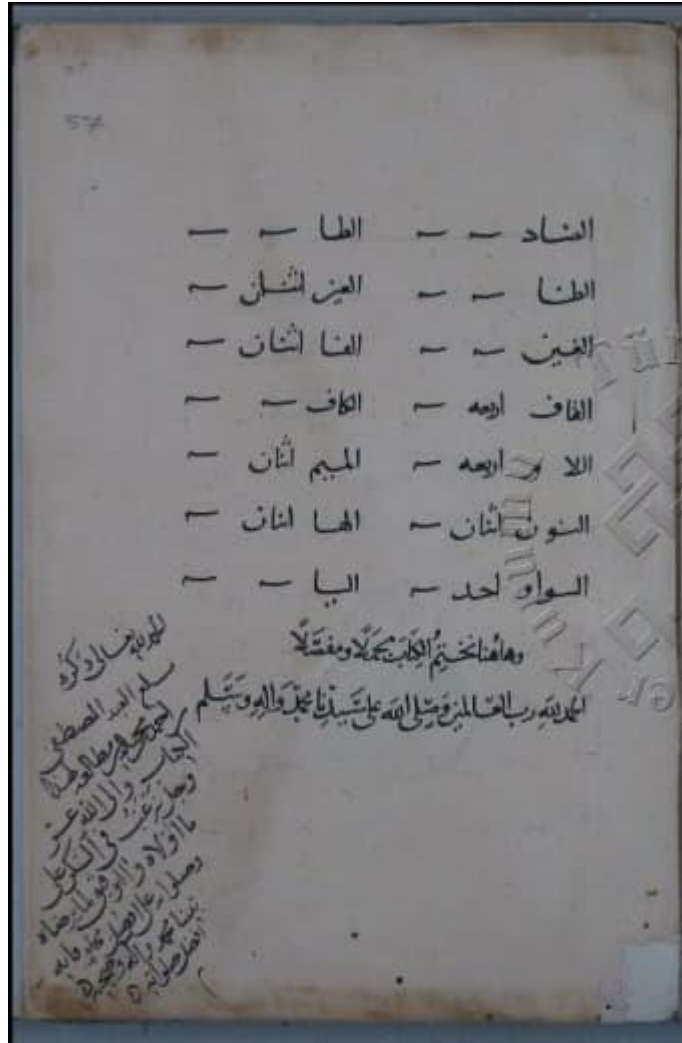 57
الضاد — — الطا — —
الظا — — العين اثنان —
الغين — — الفا اثنان —
القاف اربعه — الكاف — —
اللا م اربعه — الميم اثنان —
النون اثنان — الها اثنان —
الواو احد — اليا — —
وهاهنا نختم الكتاب مجملًا ومفصّلًا
الحمد لله رب العالمين وصلى الله على سيدنا محمد واله وسلم
الحمد لله تعالى ذكره
العبد المصطفى
الكتاب والى الله عز
وجل يرغب فى الشكر على
ما اولاه والتوفيق لما يرضاه
نبينا محمد